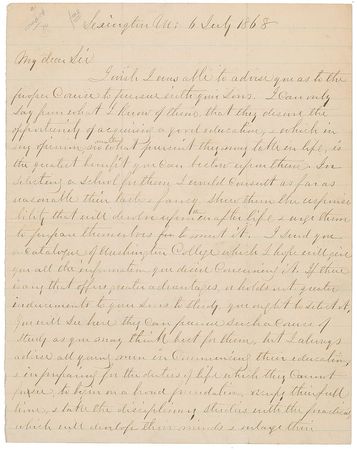 Lexington Va: 6 July 1868
My dear Sir
I wish I was able to advise you as to the
proper Course to pursue with your Sons. I Can only
say from what I know of them, that they desire the
opportunity of acquiring a good education, & which in
my opinion, whatever pursuit they may take in life, is
the greatest benefit you Can bestow upon them. In
selecting a School for them I would Consult as far as
reasonable their taste & fancy. Shew them the responsi
bility that will devolve upon in after life & urge them
to prepare themselves to meet it. I send you
a Catalogue of Washington College which I hope will give
you all the information you desire Concerning it. If there
is any that offers greater advantages, or holds out greater
inducements to your Sons to study, you ought to select it,
you will see here they Can pursue such a Course of
study as you may think best for them, but I always
advise all young men in Commencing their education,
& in preparing for the duties of life which they Cannot
to begin on a broad foundation, their full
time, & take the disciplinary studies with the practical
which will develope their minds & enlarge their